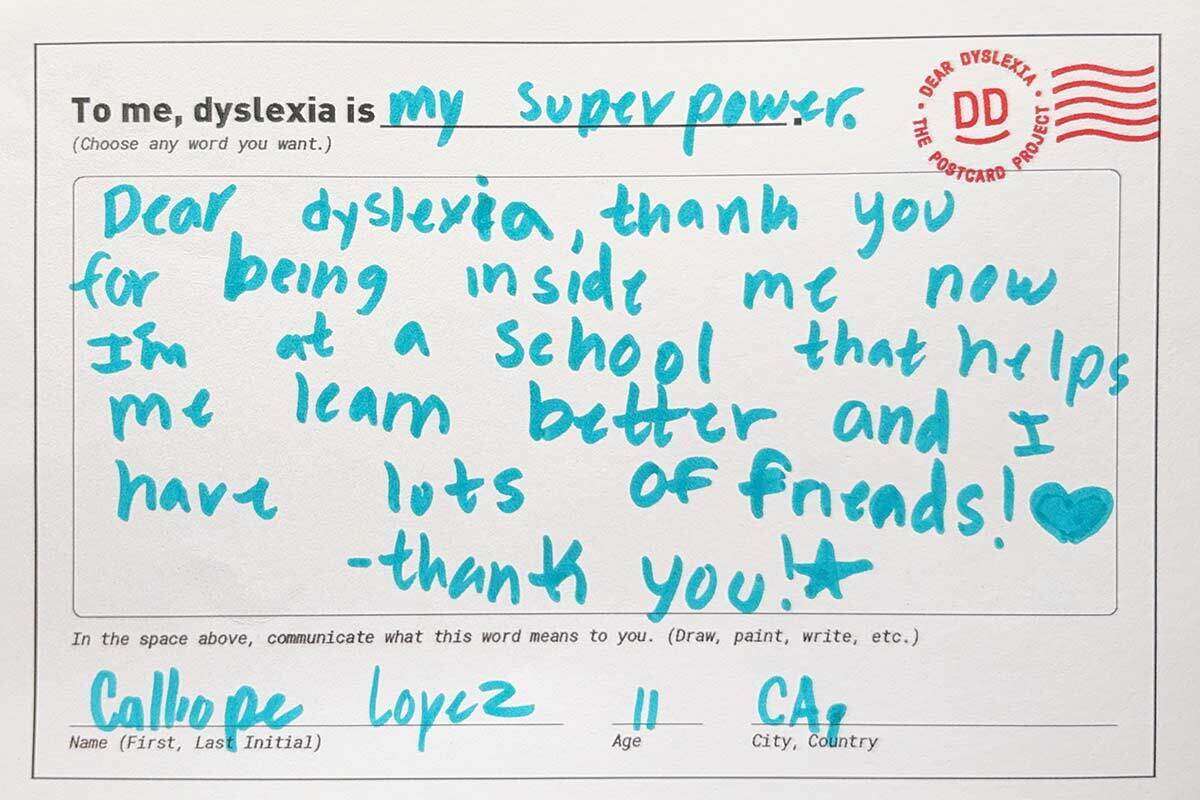 To me, dyslexia is my superpower.
(Choose any word you want.)
DEAR DYSLEXIA • THE POSTCARD PROJECT •
DD
Dear dyslexia, thank you
for being inside me now
I'm at a school that helps
me learn better and I
have lots of friends!
-thank you!
In the space above, communicate what this word means to you. (Draw, paint, write, etc.)
Calliope Lopez 11 CA,
Name (First, Last Initial) Age City, Country